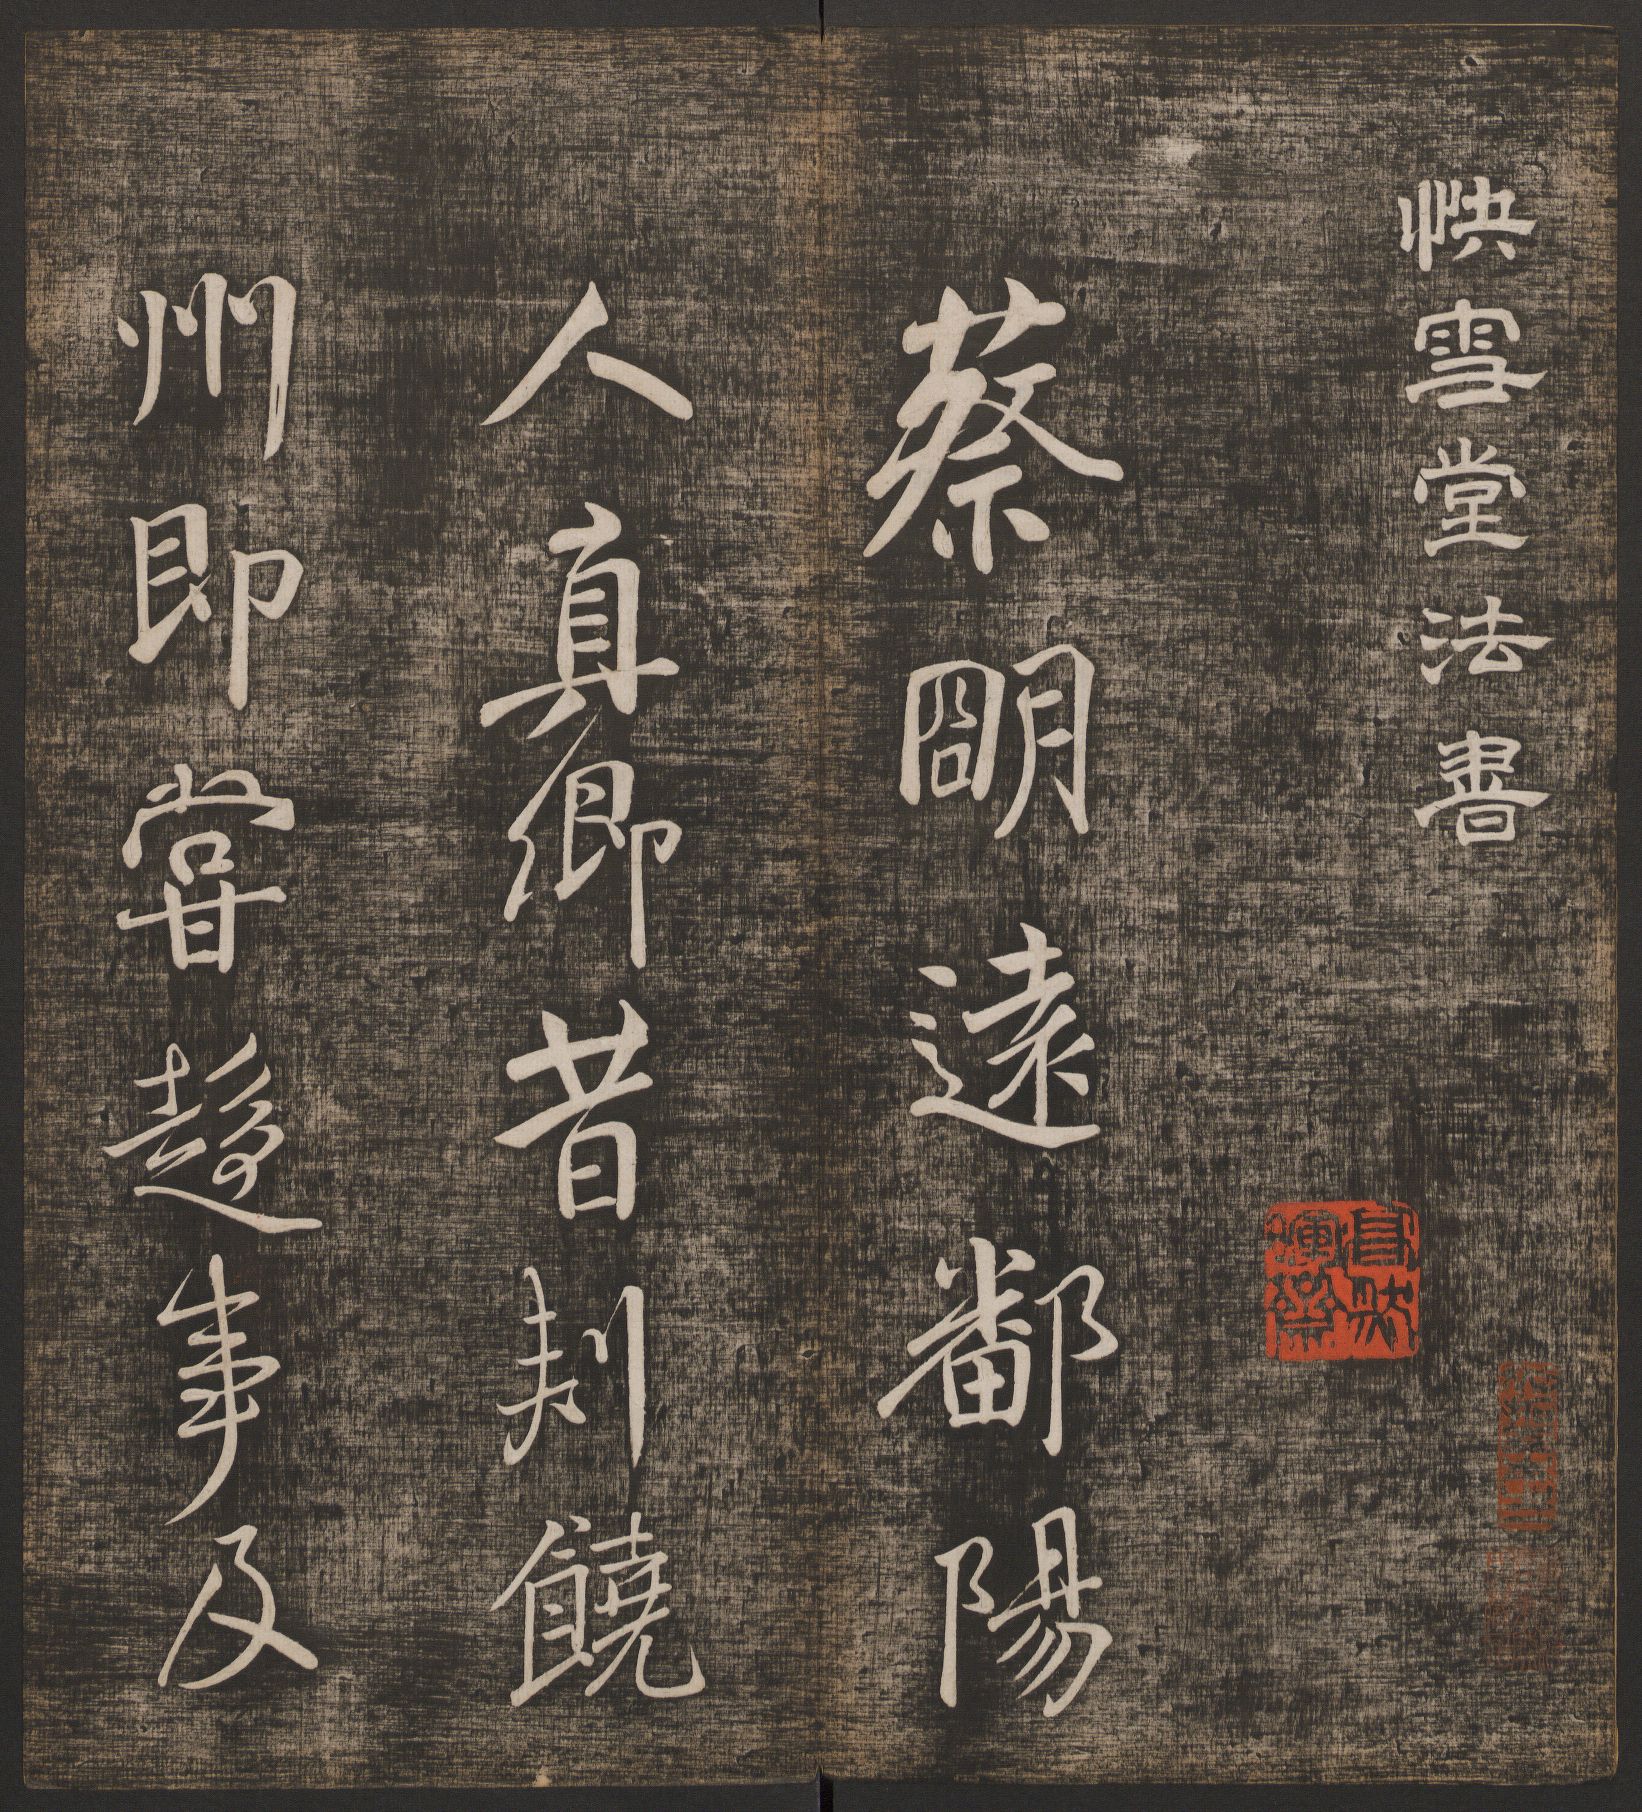 快雪堂法書
蔡朙遠鄱陽
人真卿昔刾饒
州即甞趍事及